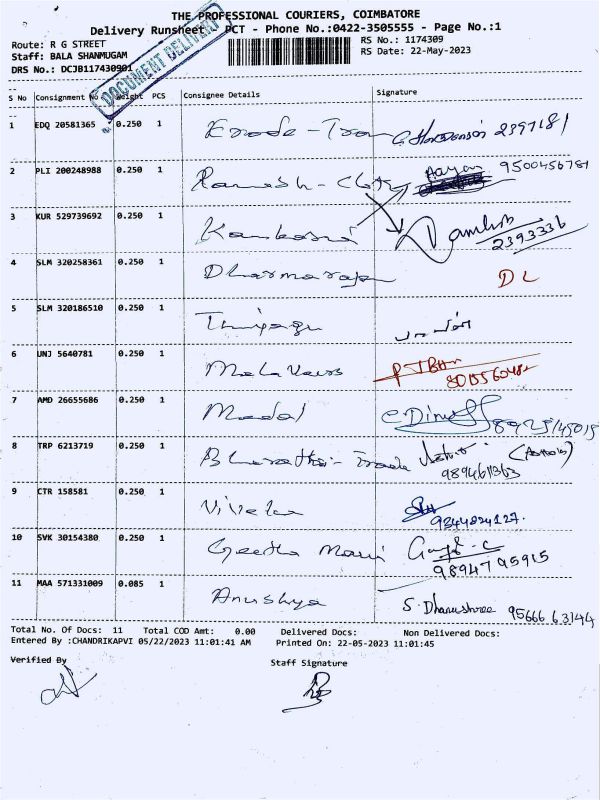 THE PROFESSIONAL COURIERS, COIMBATORE
Delivery Runsheet - PCT - Phone No.:0422-3505555 - Page No.:1
Route: R G STREET RS No.: 1174309
Staff: BALA SHANMUGAM RS Date: 22-May-2023
DRS No.: DCJB117430901
DOCUMENT DELIVERY
S No Consignment No Weight PCS Consignee Details Signature
1 EDQ 20581365 0.250 1 Erode - Tran 2397181
2 PLI 200248988 0.250 1 Ramesh - 9500456781
3 KUR 529739692 0.250 1 2393336
4 SLM 320258361 0.250 1 Dharmaraja DL
5 SLM 320186510 0.250 1 Thiyagu
6 UNJ 5640781 0.250 1
7 AMD 26655686 0.250 1 Madal
8 TRP 6213719 0.250 1 Bharathi - Trade
9894611363
9 CTR 158581 0.250 1
9344824127.
10 SVK 30154380 0.250 1 Geetha
98947 95915
11 MAA 571331009 0.085 1 Anushya S. Dhanushree 95666 63144
Total No. Of Docs: 11 Total COD Amt: 0.00 Delivered Docs: Non Delivered Docs:
Entered By :CHANDRIKAPVI 05/22/2023 11:01:41 AM Printed On: 22-05-2023 11:01:45
Verified By Staff Signature